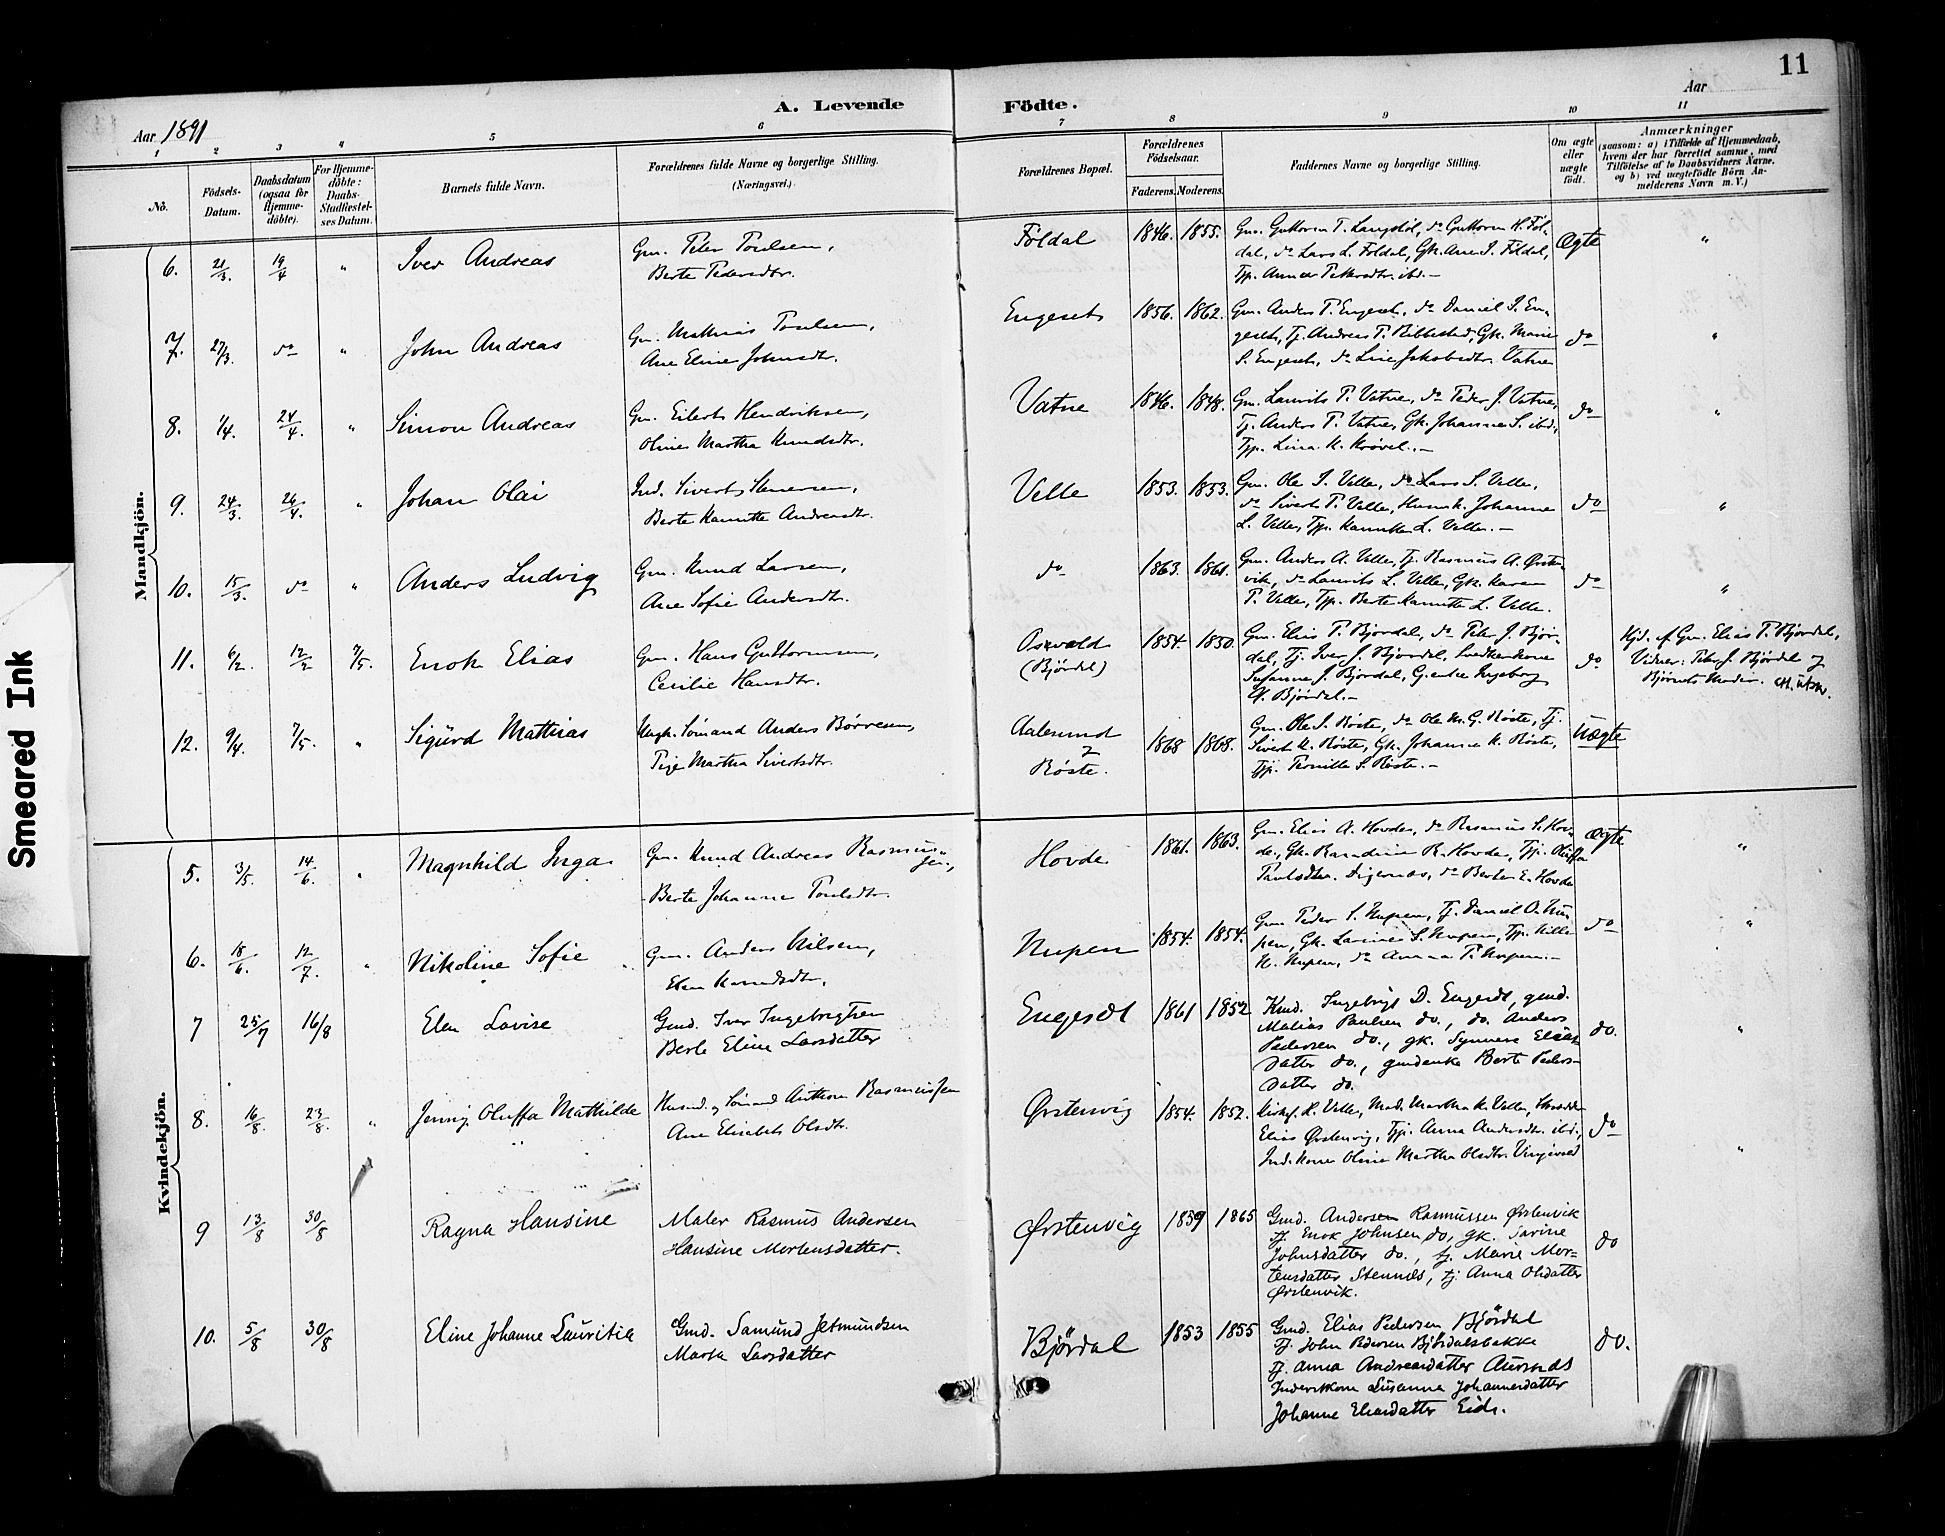 11
A. Levende Födte.
Aar 1891
Aar
1 2 3 4 5 6 7 8 9 10 11
No.
Födsels-Datum.
Daabsdatum (ogsaa for Hjemmedöbte).
For Hjemmedöbte: Daabs-Stadfæstelses Datum.
Barnets fulde Navn.
Forældrenes fulde Navne og borgerlige Stilling. (Næringsvei.)
Forældrenes Bopæl.
Forældrenes Födselsaar.
Faderens. Moderens.
Faddernes Navne og borgerlige Stilling.
Om ægte eller uægte födt.
Anmærkninger
(saasom: a) i Tilfælde af Hjemmedaab, hvem der har forrettet samme, med Tilföielse af to Daabsvidners Navne. og b) ved uægtefödte Börn Anmelderens Navn m. V.)
Mandkjön.
6. 21/3. 19/4 " Iver Andreas
Gm. Peter Poulsen,
Berte Pedersdtr.
Foldal 1846. 1855.
Gm. Guttorm T. Langstöl, do Guttorm H. Föl-
dal, do Lars L. Foldal, Gk. Ane I. Foldal,
Tjp. Anna Pettersdtr. ibd.-
Ægte "
7. 27/3. do " John Andreas
Gm. Mathias Poulsen,
Ane Eline Johnsdtr.
Engeset 1856. 1862.
Gm. Anders P. Engeset, do Daniel I. En-
geset, Tj. Andreas P. Ribbestad, Gk. Marie
S. Engeset, do Line Jakobsdtr. Vatne
do "
8. 1/4. 24/4. " Simon Andreas
Gm. Eilert Hendriksen,
Oline Martha Knudsdtr.
Vatne 1846. 1848.
Gm. Laurits P. Vatne, do Peder J. Vatne,
Tj. Anders P. Vatne, Gk. Johanne S. ibd.,
Tjp. Lina K. Krövel.-
do "
9. 24/3. 26/4. " Johan Olai
Ind. Sivert Stenersen,
Berte Kanutte Andersdtr.
Velle 1853. 1853.
Gm. Ole I. Velle, do Lars S. Velle,
do Sivert P. Velle, Husmk. Johanne
L. Velle, Tjp. Kanutte L. Velle.-
do "
10. 15/3. do " Anders Ludvig
Gm. Knud Larsen,
Ane Sofie Andersdtr.
do 1863. 1861.
Gm. Anders A. Velle, Tj. Rasmus A. Ørsten-
vik, do Laurits L. Velle, Gk. Karen
P. Velle, Tjp. Berte Kanutte L. Velle.
do "
11. 6/2. 12/2 7/5. Enok Elias
Gm. Hans Guttormsen,
Cecilie Hansdtr.
Osvold
(Björdal)
1854. 1850.
Gm. Elias P. Björdal, do Peter J. Björ-
dal, Tj. Iver J. Björdal, Snedkerkone
Susanna J. Björdal, Gj.enke Ingeborg
H. Björdal.-
do
Hjd. af Gm. Elias P. Björdal,
Vidner: Peter J. Björdal og
Barnets Moder.
12. 9/4. 7/5. " Sigurd Mathias
Ungk. Sömand Anders Börresen,
Pige Martha Sivertsdtr.
Aalesund
Röste.
1868 1868.
Gm. Ole S. Röste, do Ole M. G. Röste, Tj.
Sivert K. Röste, Gk. Johanna K. Röste,
Tjp. Pernille S. Röste.-
Uægte
Kvindekjön.
5. 3/5. 14/6. " Magnhild Inga
Gm. Knud Andreas Rasmus-
sen,
Berte Johanne Poulsdtr.
Hovde 1861. 1863.
Gm. Elias A. Hovde, do Rasmus S. Hov-
de, Gk. Karadine R. Hovde, Tjp. Oluffa
Paulsdtr. Digernes, do Berte E. Hovde
Ægte "
6. 18/6. 12/7. " Nikoline Sofie
Gm. Anders Nilsen,
Elen Knudsdtr.
Nupen 1854. 1854.
Gm. Peder S. Nupen, Tj. Daniel O. Nu-
pen, Gk. Larine S. Nupen, Tjp. Nille
N. Nupen, do Anna P. Nupen.-
do "
7 25/7 16/8 Elen Lovise
Gmd. Iver Ingebrigtsen
Berte Eline Larsdatter
Engesæt 1861 1852
Kmd. Ingebrigt D. Engesæt, gmd.
Matias Paulsen do., do. Anders
Pedersen do., gk. Synneve Elias
datter do., gmdenke Berte Peders-
datter do.
do. "
8. 16/8. 23/8. " Jenny Oluffa Mathilde
Husmd. og Sömand Anthon Rasmussen
Ane Elisabet Olsdtr.
Ørstenvig 1854. 1852.
Kirkes. K. Velle, Mad. Martha K. Velle, Skrædder
Elias Ørstenvig, Tjp. Anna Andersdtr. ibd.,
Ind. kone Oline Martha Olsdtr. Vingevold
do "
9 13/8 30/8 Ragna Hansine
Maler Rasmus Andersen
Hansine Mortensdatter.
Ørstenvig 1859 1865
Gmd. Andersen Rasmussen Ørstenvik
Tj. Enok Johnsen do, gk. Sarine
Johnsdatter do., tj. Marie Mor=
tensdatter Stennes, tj Anna Olsdatter
Ørstenvik.
do
10. 5/8 30/8 Eline Johanne Lauritia
Gmd. Samund Jetmundsen
Marta Larsdatter
Björdal 1853 1855
Gmd. Elias Pedersen Björdal
Tj. John Pedersen Björdalsbakke
tj. Anna Andreasdatter Aurstad
Inderstkone Susanna Johannesdatter
Johanne Eliasdatter Eids.
do.
Smeared Ink